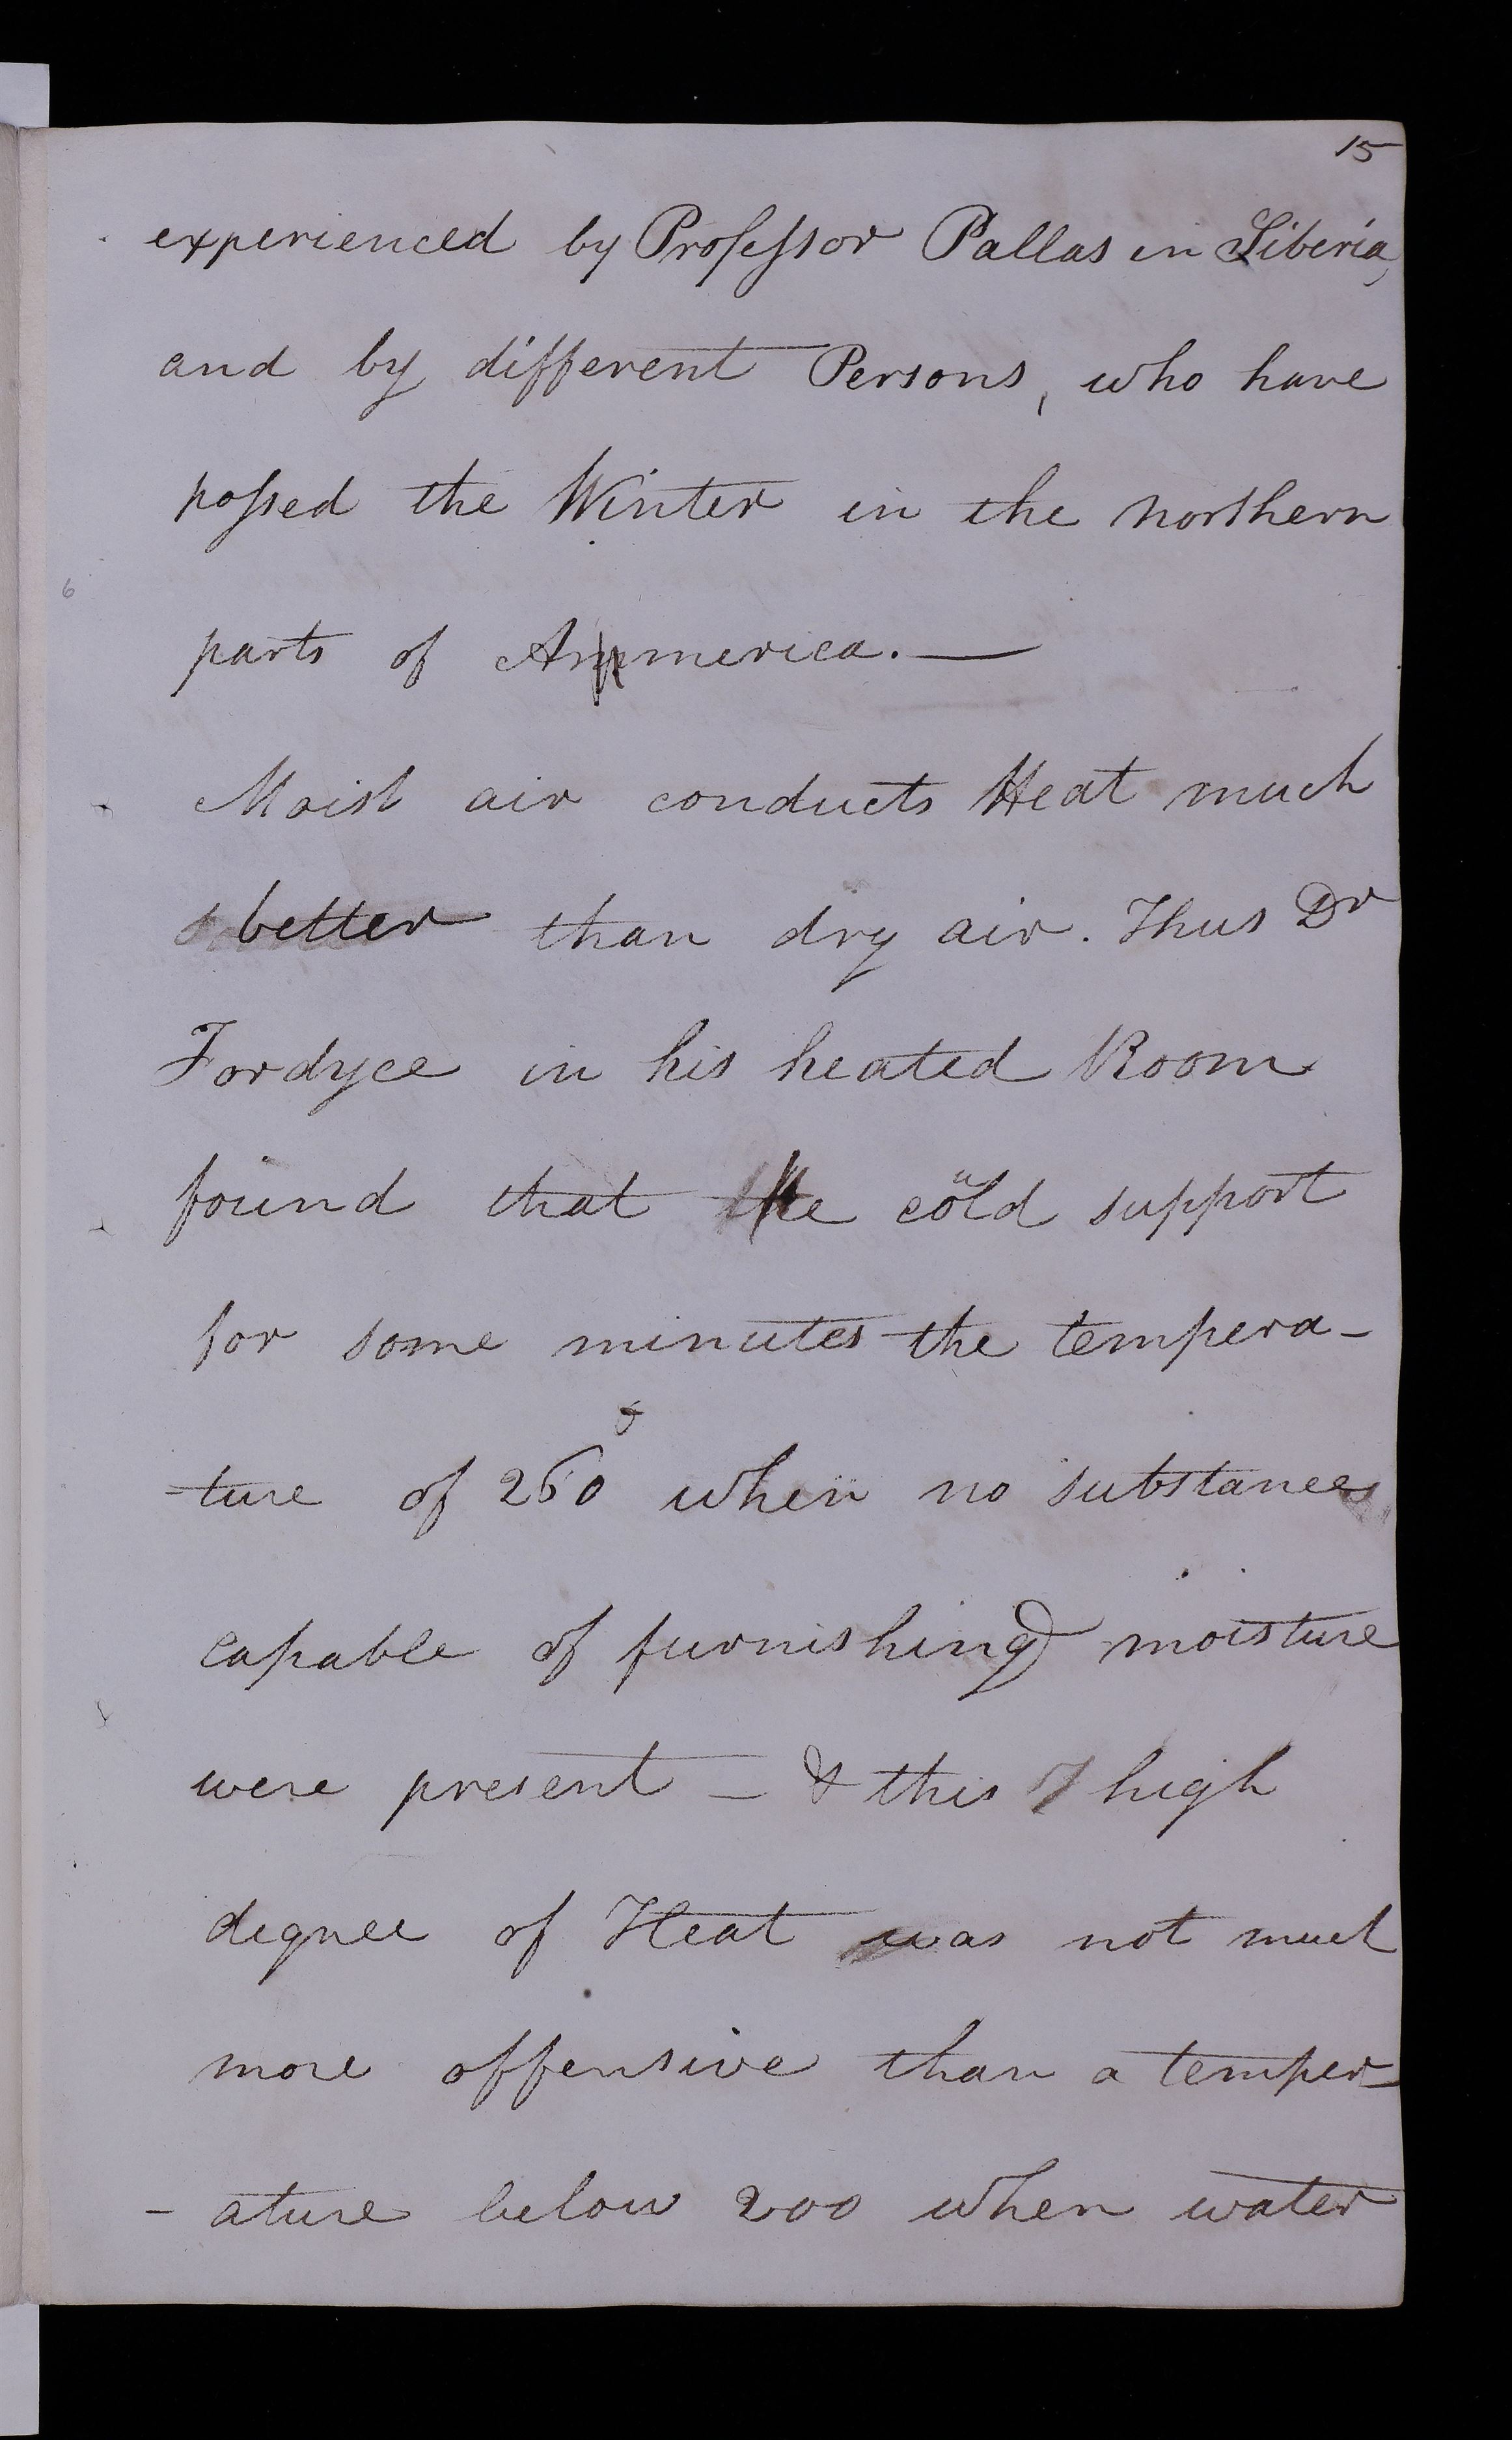 15
experienced by Professor Pallas in Siberia,
and by different Persons, who have
possed the Winter in the northern
6
parts of Ammerica. —
Moist air conducts Heat much
better than dry air. Thus Dr
Fordyce in his heated Room
found that he could support
for some minutes the tempera-
-ture of 260° when no substances
capable of furnishing moisture
were present – & this high
degree of Heat was not much
more offensive than a temper-
-ature below 200 when water